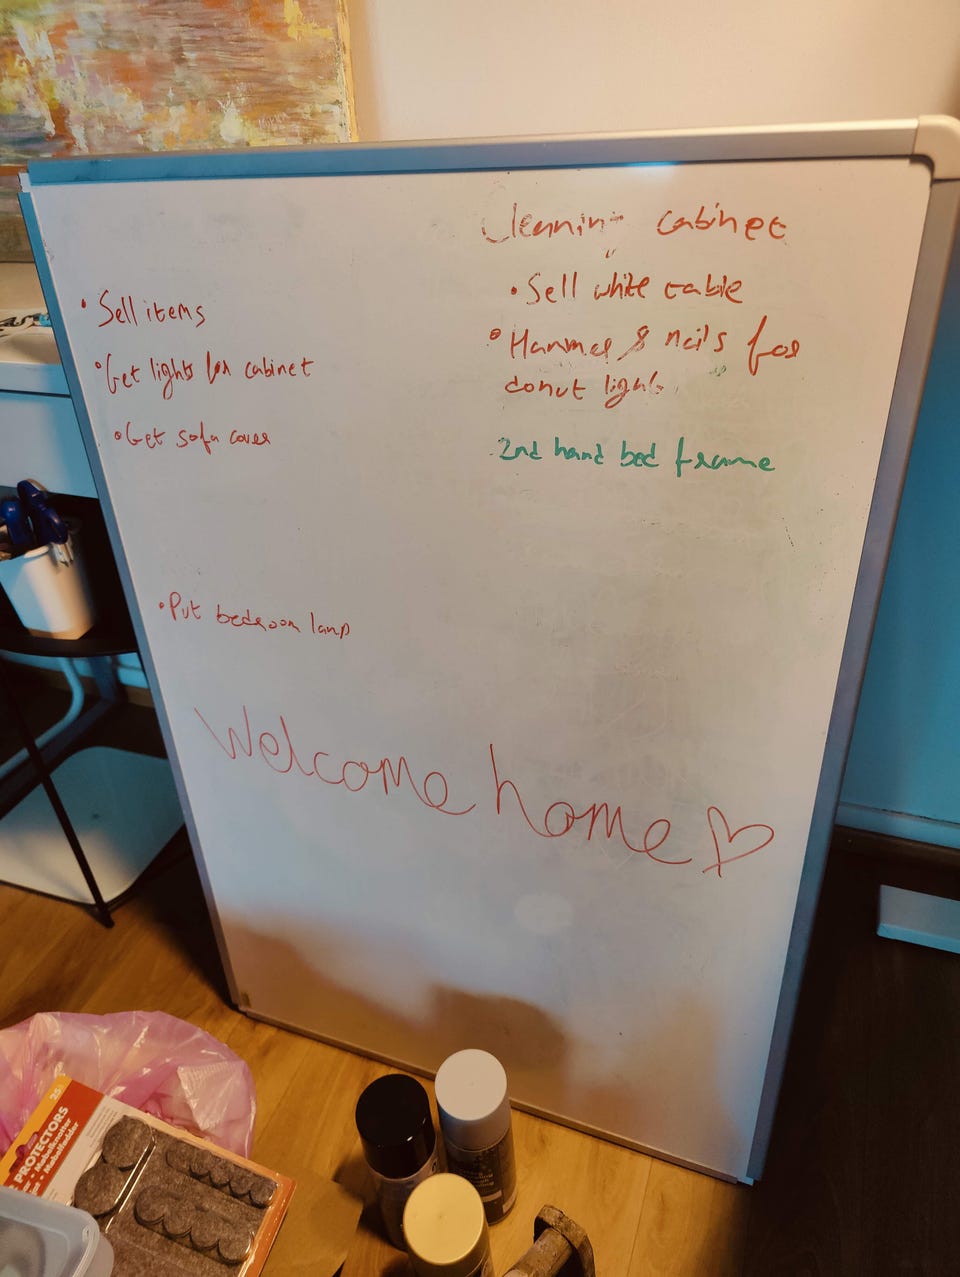 Cleaning cabinet
• Sell white table
• Hammer & nails for
donut light
2nd hand bed frame
• Sell items
• Get lights for cabinet
• Get sofa cover
• Put bedroom lamp
Welcome home
25
PROTECTORS